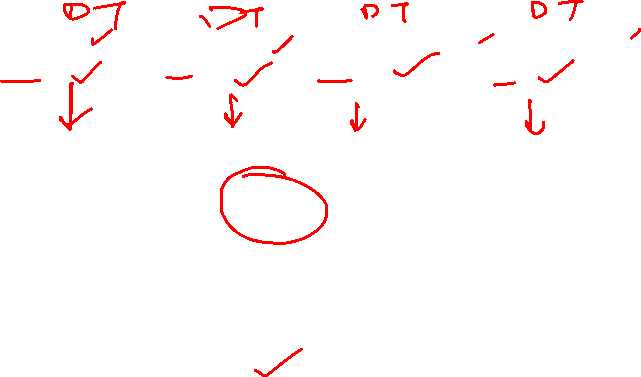 DT DT DT DT